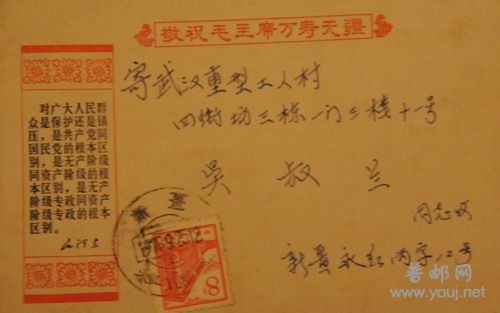 敬祝毛主席万寿无疆
对广大人民群
众是保护还是镇
压，是共产党同
国民党的根本区
别，是无产阶级
同资产阶级的根
本区别，是无产
阶级专政同资产
阶级专政的根本
区别。
毛泽东
寄武汉重型工人村
四街坊三栋一门二楼十一号
吴叔兰
同志收
新 永红丙字12号
8
晋邮网
www.youj.net